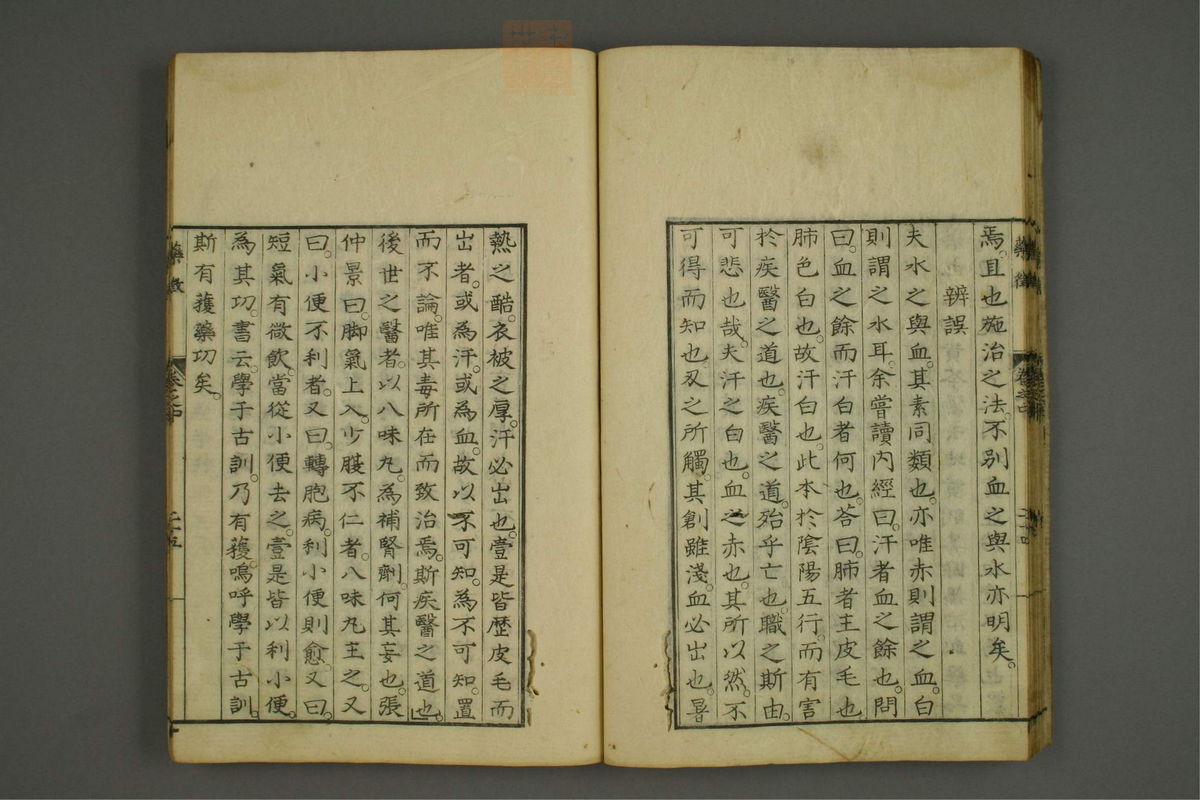 焉。且也施治之法。不別血之與水亦明矣。
辨誤
夫水之與血。其素同類也。亦唯赤則謂之血。白
則謂之水耳。余嘗讀內經曰。汗者血之餘也。問
曰。血之餘而汗白者何也。荅曰。肺者主皮毛也。
肺色白也。故汗白也。此本於陰陽五行。而有害
於疾醫之道也。疾醫之道。殆乎亡也。職之斯由。
可悲也哉。夫汗之白也。血之赤也。其所以然。不
可得而知也。刄之所觸。其創雖淺。血必出也。暑
藥徵
卷之中
二十四
熱之酷。衣被之厚。汗必出也。壹是皆歷皮毛而
出者。或為汗。或為血。故以不可知。為不可知。置
而不論。唯其毒所在而致治焉。斯疾醫之道也。
後世之醫者。以八味丸。為補腎劑。何其妄也。張
仲景曰。脚氣上入。少腹不仁者。八味丸主之。又
曰。小便不利者。又曰。轉胞病。利小便則愈。又曰。
短氣有微飲。當從小便去之。壹是皆以利小便。
為其功。書云。學于古訓。乃有獲。嗚呼學于古訓。
斯有獲藥功矣。
藥徵
卷之中
二十五